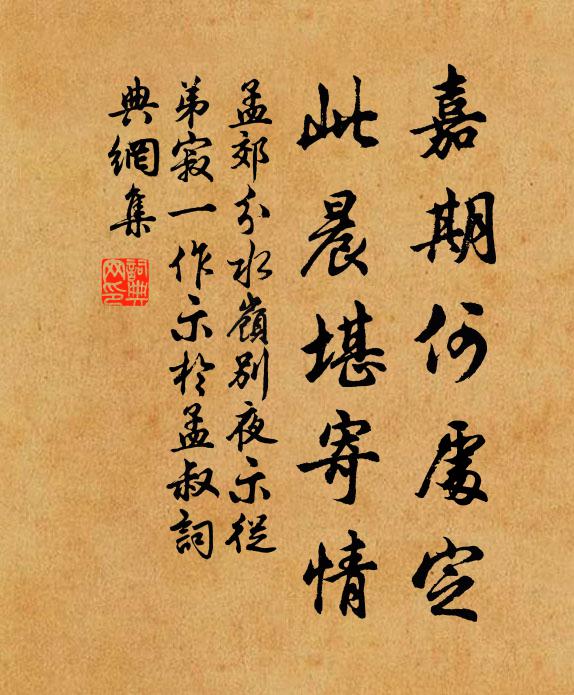 嘉期何處定
此晨堪寄情
孟郊分水嶺別夜示從
弟寂一作示於孟叔詞
典網集
詞典
網印